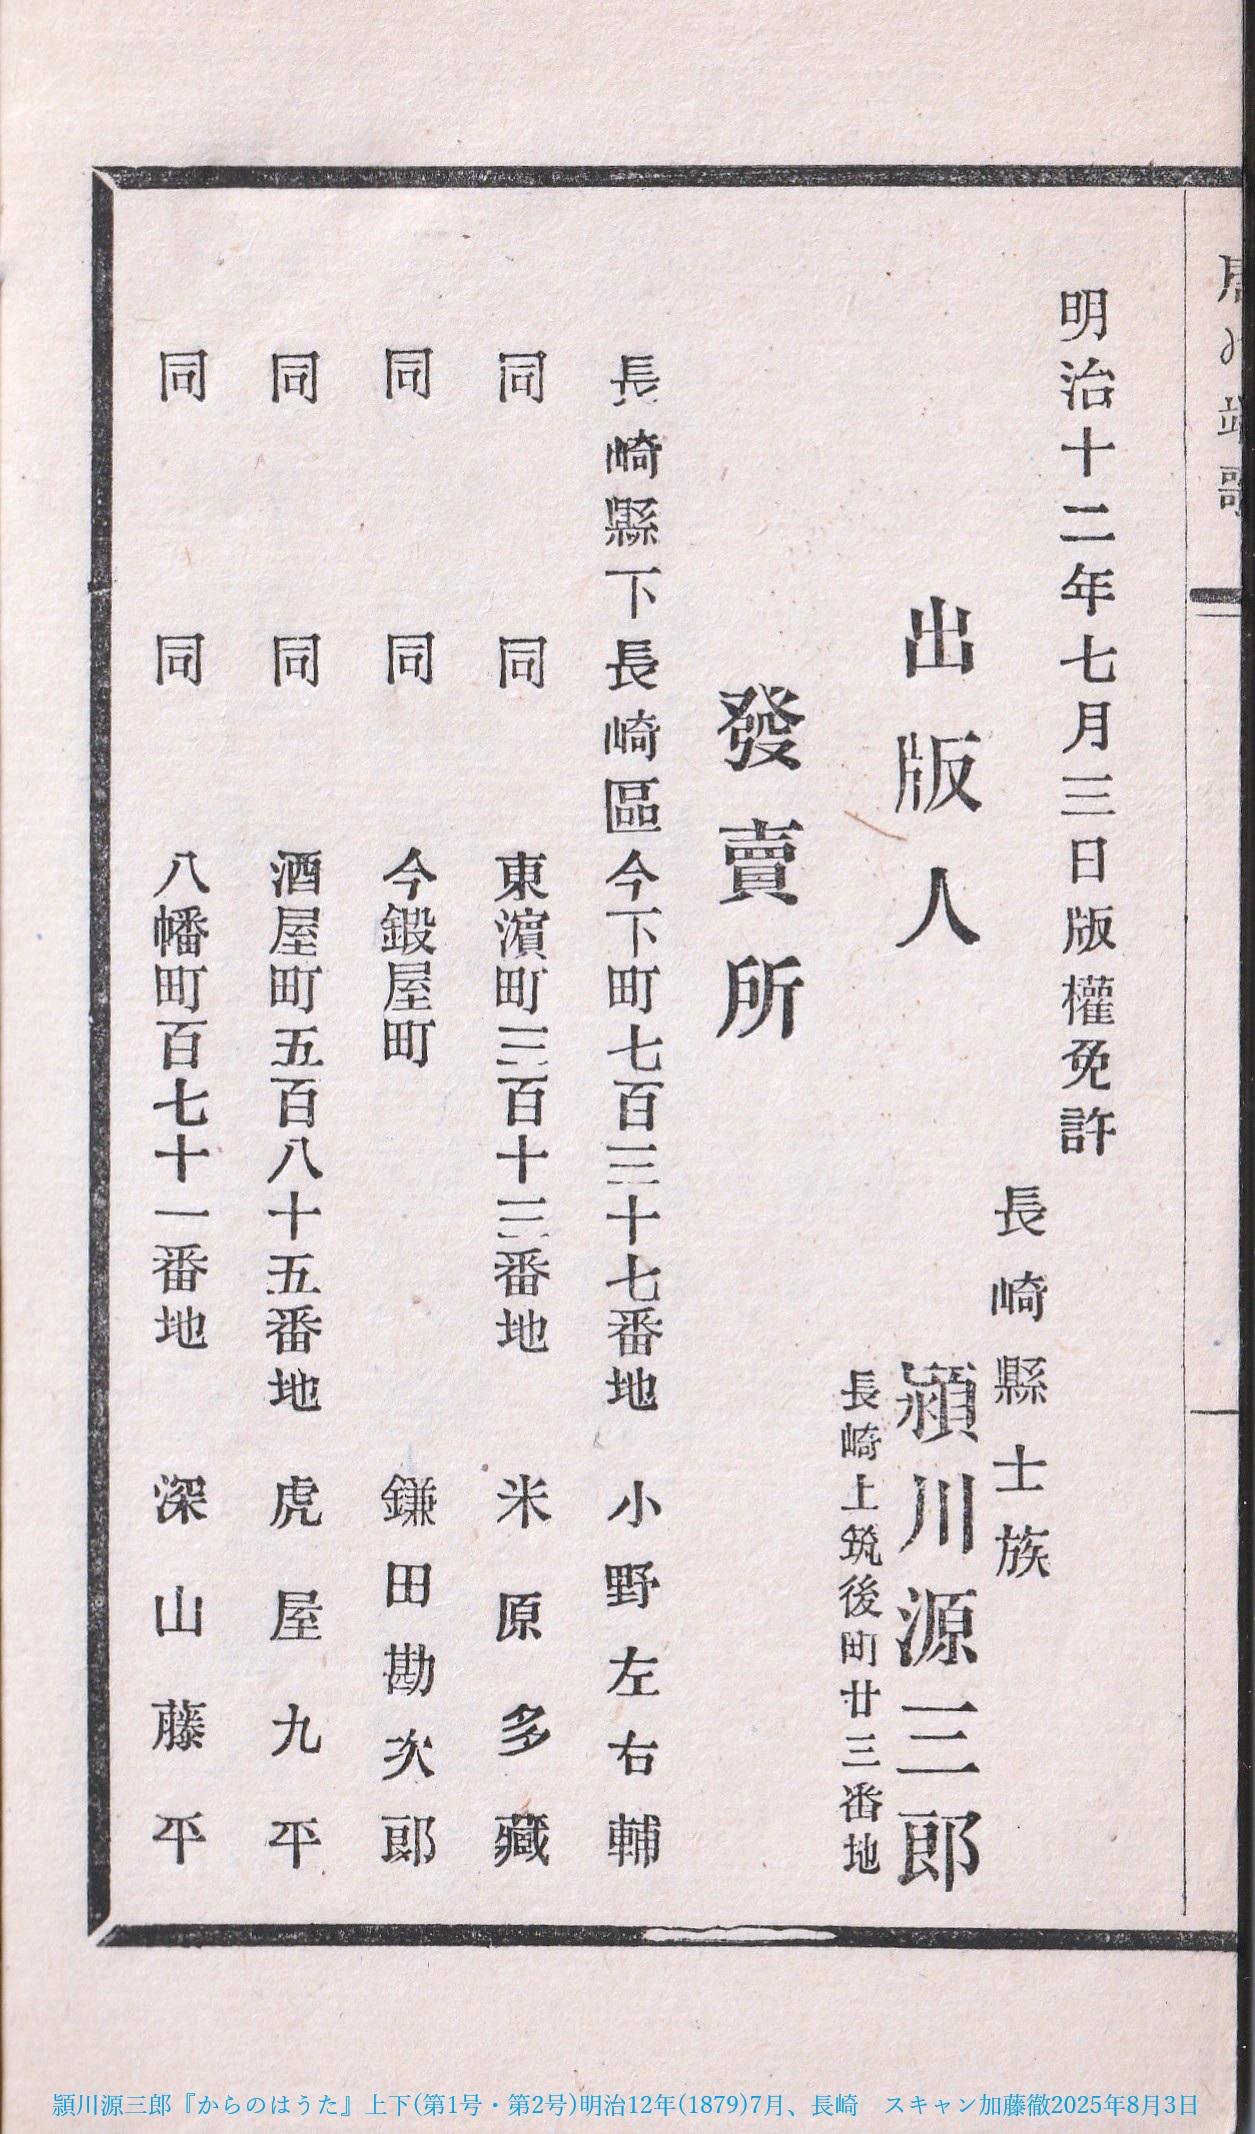 唐の端歌
明治十二年七月三日版權免許
長崎縣士族
出版人 潁川源三郎
長崎上筑後町廿三番地
發賣所
長崎縣下長崎區今下町七百三十七番地 小野左右輔
同 同 東濵町三百十三番地 米原多藏
同 同 今鍛屋町 鎌田勘次郎
同 同 酒屋町五百八十五番地 虎屋九平
同 同 八幡町百七十一番地 深山藤平
頴川源三郎『からのはうた』上下(第1号・第2号)明治12年(1879)7月、長崎 スキャン加藤徹2025年8月3日